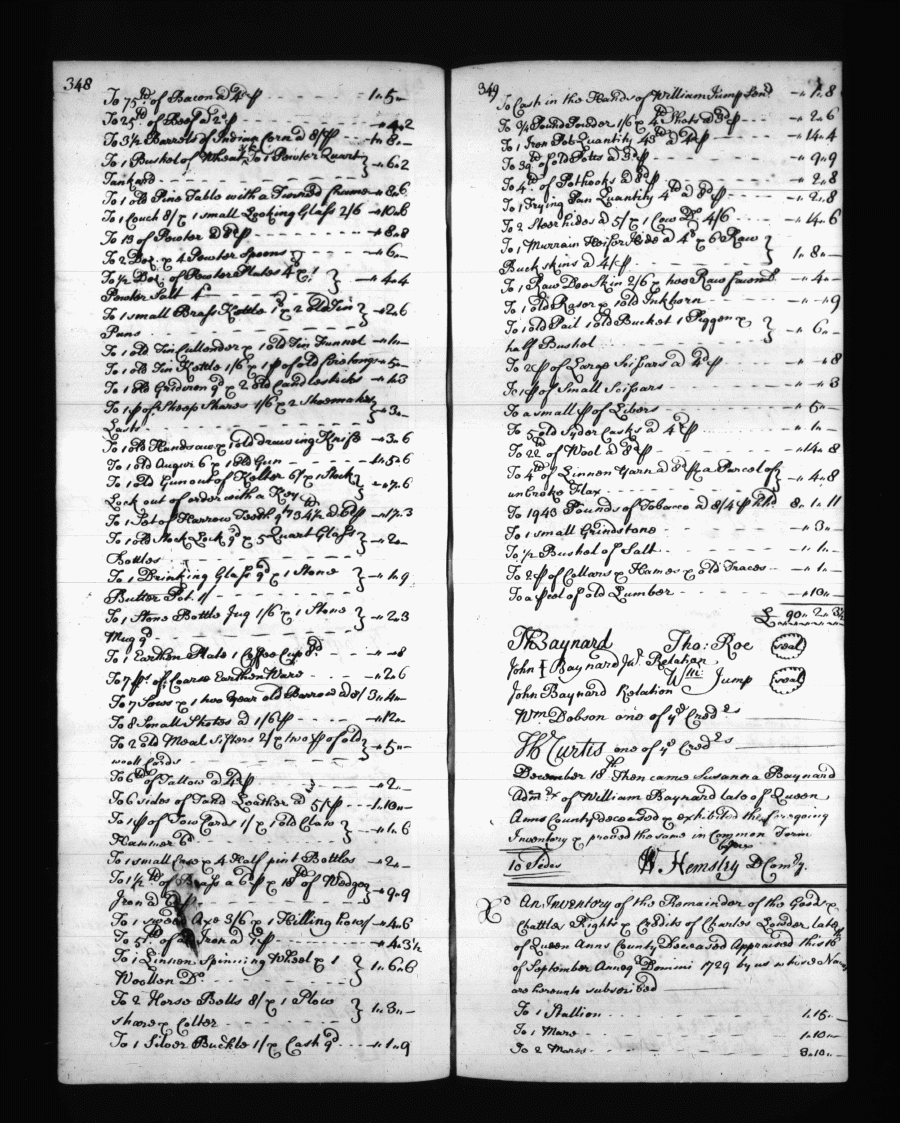 348
To 75 lb of Bacon a 4d p 1 " 5 "
To 25 lb of Beef a 2d p - " 4 " 2
To 3½ Barrels of Indian Corn a 8/ p 1 " 8 "
To 1 Bushel of Wheat 3/6 To 1 Pewter Quart } - " 6 " 2
Tankard
To 1 old Pine Table with a Turned frame - " 8 " 6
To 1 Couch 8/ & 1 small Looking Glass 2/6 - " 10 " 6
To 13 of Pewter a 8d p - " 8 " 8
To 2 Doz: & 4 Pewter Spoons - " 6 "
To ½ Doz: of Pewter Plates 4/ & 1 } - " 4 " 4
Pewter Salt 4d
To 1 small Brass Kettle 1/ & 2 old Tin } - " 2 " 6
Pans
To 1 old Tin Cullender & 1 old Tin Funnel - " 1 "
To 1 old Tin Kettle 1/6 & 1 p of old - " 5 "
To 1 old Gridiron 9d & 2 old Candlesticks - " 1 " 3
To 1 p of Sheep Shares 1/6 & 2 Shoemakers } - " 3 "
Lasts
To 1 old Handsaw & 1 old drawing Knife - " 3 " 6
To 1 old Augur 6 & 1 old Gun - " 5 " 6
To 1 old Gun out of Kelter 6/ & 1 Stock } - " 7 " 6
Lock out of order with a Key
To 1 Sot of Harrow Teeth qt 34½ a 6d p - " 17 " 3
To 1 old Stock Lock 9d & 5 Quart Glass } - " 2 "
Bottles
To 1 Drinking Glass 9d & 1 Stone } - " 1 " 9
Butter Pot 1/
To 1 Stone Bottle Jug 1/6 & 1 Stone } - " 2 " 3
Mug 9d
To 1 Earthen Plate 1 Coffee Cup 8d - " - " 8
To 7 ps of Coarse Earthen Ware - " 2 " 6
To 7 Sows & 1 two Year old Barrow a 8/ 3 " 4 "
To 8 Small Shotes a 1/6 p - " 12 "
To 2 old Meal Sifters 2/ & two p of old } - " 5 "
wooll Cards
To 6 lb of Tallow a 4d p - " 2 "
To 6 sides of Tand Leather a 5/ p 1 " 10 "
To 1 p of Tow Cards 1/ & 1 old Claw } - " 1 " 6
Hammer 6d
To 1 small Case & 4 Half pint Bottles - " 2 "
To 1½ lb of Brass a 6d p & 18 lb of Wedges } - " 9 " 9
Iron a 6d p
To 1 Axe 3/6 & 1 Hilling how 1/ - " 4 " 6
To 5 lb of old Iron a p - " 4 " 3½
To 1 Linnen Spinning Wheel & 1 } 1 " 6 " 6
Woollen Do
To 2 Horse Bells 8/ & 1 Plow } 1 " 3 "
share & Colter
To 1 Silver Buckle 1/ & Cash 9d - " 1 " 9
349
To Cash in the Hands of William Jump Senr - " 1 " 8
To ¾ Pound Powder 1/6 & 4 lb Shott a 3d p - " 2 " 6
To 1 Iron Pot Quantity 43 lb a 4d p - " 14 " 4
To 39 lb of old Potts a 3d p - " 9 " 9
To 4 lb of Pothooks a 8d p - " 2 " 8
To 1 Frying Pan Quantity 4 lb a 8d p - " 2 " 8
To 2 Steer hides a 5/ & 1 Cow Do 4/6 - " 14 " 6
To 1 Murrain Heifor Hide a 4/ & 6 Raw } 1 " 8 "
Buck skins a 4/ p
To 1 Raw Doe Skin 2/6 & two Raw fawns Do - " 4 "
To 1 old Rasor & 1 old Inkhorn - " - " 9
To 1 old Pail 1 old Bucket 1 Piggon & } - " 6 "
half Bushel
To 2 p of Large Scissars a 4d p - " - " 8
To 1 p of Small Scissars - " - " 3
To a small p of - " 5 "
To 5 old Syder Casks a p - " 1 "
To 22 lb of Wool a 8d p - " 14 " 8
To 4 lb of Linnen Yarn a p & a Parcel of } - " 4 " 8
unbroke Flax
To 1943 Pounds of Tobacco a 8/4 p hd 8 " 1 " 11
To 1 small Grindstone - " 3 "
To ½ Bushel of Salt - " 1 "
To 2 p of Collars & Hames & old Traces - " 1 "
To a pcel of old Lumber - " 10 "
£ 90 " 2 " 3½
Baynard Tho: Roe (seal)
John Baynard Junr Relation
Wm Jump (seal)
John Baynard Relation
Wm Dobson one of ye Credrs
Curtis one of ye Credrs
December 18th Then came Susanna Baynard
Admrx of William Baynard late of Queen
Anns County deceased & exhibited the foregoing
Inventory & proved the same in Common Form
before
10 Sides W. Hemsley D Comry.
Exd An Inventory of the Remainder of the Goods &
Chattles Rights & Credits of Charles Lowder late
of Queen Anns County Deceased Appraised this 16th
of September Annoq Domini 1729 by us whose Names
are hereunto subscribed
To 1 Stallion 1 " 15 "
To 1 Mare 1 " 10 "
To 2 Mares 3 " 10 "